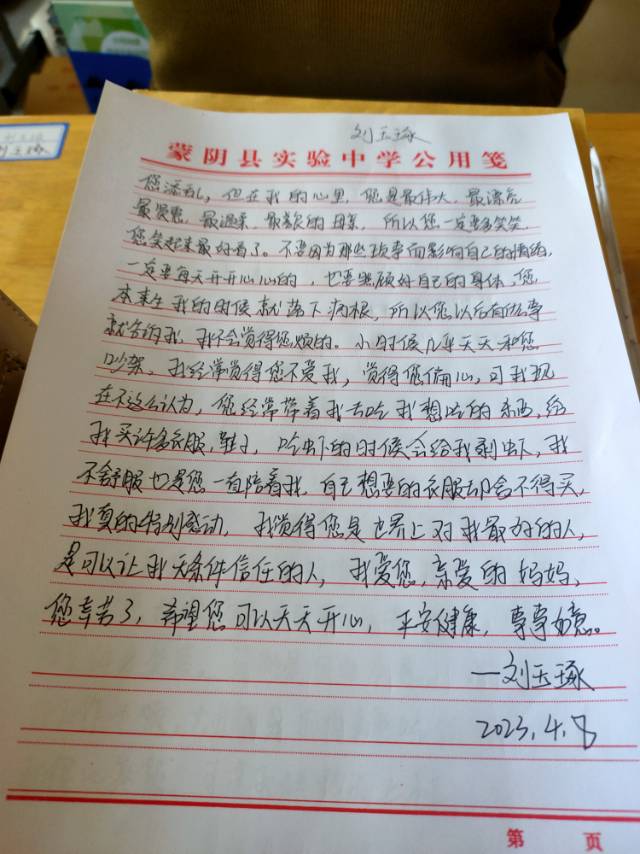 刘玉琢
刘玉琢
蒙阴县实验中学公用笺
您添乱，但在我的心里，您是最伟大、最漂亮
最贤惠、最温柔、最亲的母亲，所以您一定要多笑笑，
您笑起来最好看了。不要因为那些琐事而影响自己的情绪，
一定要每天开开心心的，也要照顾好自己的身体，您
本来生我的时候就落下病根，所以您以后有什么事
就告诉我，我不会觉得您烦的。小时候几乎天天和您
吵架，我经常觉得您不爱我，觉得您偏心，可我现
在不这么认为，您经常带着我去吃我想吃的东西，给
我买许多衣服，鞋子，吃虾的时候会给我剥虾，我
不舒服也是您一直陪着我，自己想要的衣服却舍不得买，
我真的特别感动，我觉得您是世界上对我最好的人，
是可以让我无条件信任的人，我爱您，亲爱的妈妈，
您辛苦了，希望您可以天天开心，平安健康，事事如意。
—刘玉琢
2023.4.8
第 页